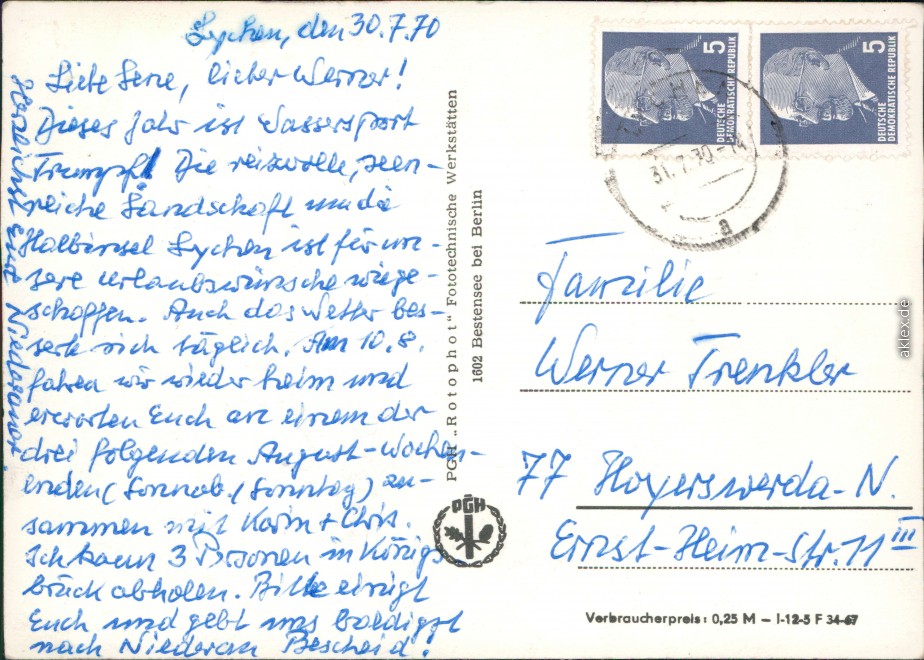 Lychen, den 30.7.70
Liebe Lene, lieber Werner!
Dieses Jahr ist Wassersport
Trumpf! Die reizvolle, seen-
reiche Landschaft um die
Halbinsel Lychen ist für un-
sere Urlaubswünsche wiege-
schaffen. Auch das Wetter bes-
sert sich täglich. Am 10.8.
fahren wir wieder heim und
erwarten Euch an einem der
drei folgenden August-Wochen-
enden (Sonnab./Sonntag) zu-
sammen mit Karin + Chris.
Ich kann 3 Personen in Königs
brück abholen. Bitte einigt
Euch und gebt uns baldigst
nach Niederau Bescheid!
Herzlichst Eure Niederauer.
PGH „Rotophot" Fototechnische Werkstätten
1602 Bestensee bei Berlin
PGH
5
DEUTSCHE
DEMOKRATISCHE REPUBLIK
5
DEUTSCHE
DEMOKRATISCHE REPUBLIK
31.7.70-14
a
Familie
Werner Trenkler
77 Hoyerswerda-N.
Ernst-Heim-Str. 11 III
Verbraucherpreis: 0,25 M – I-12-5 F 34-67
aklex.de